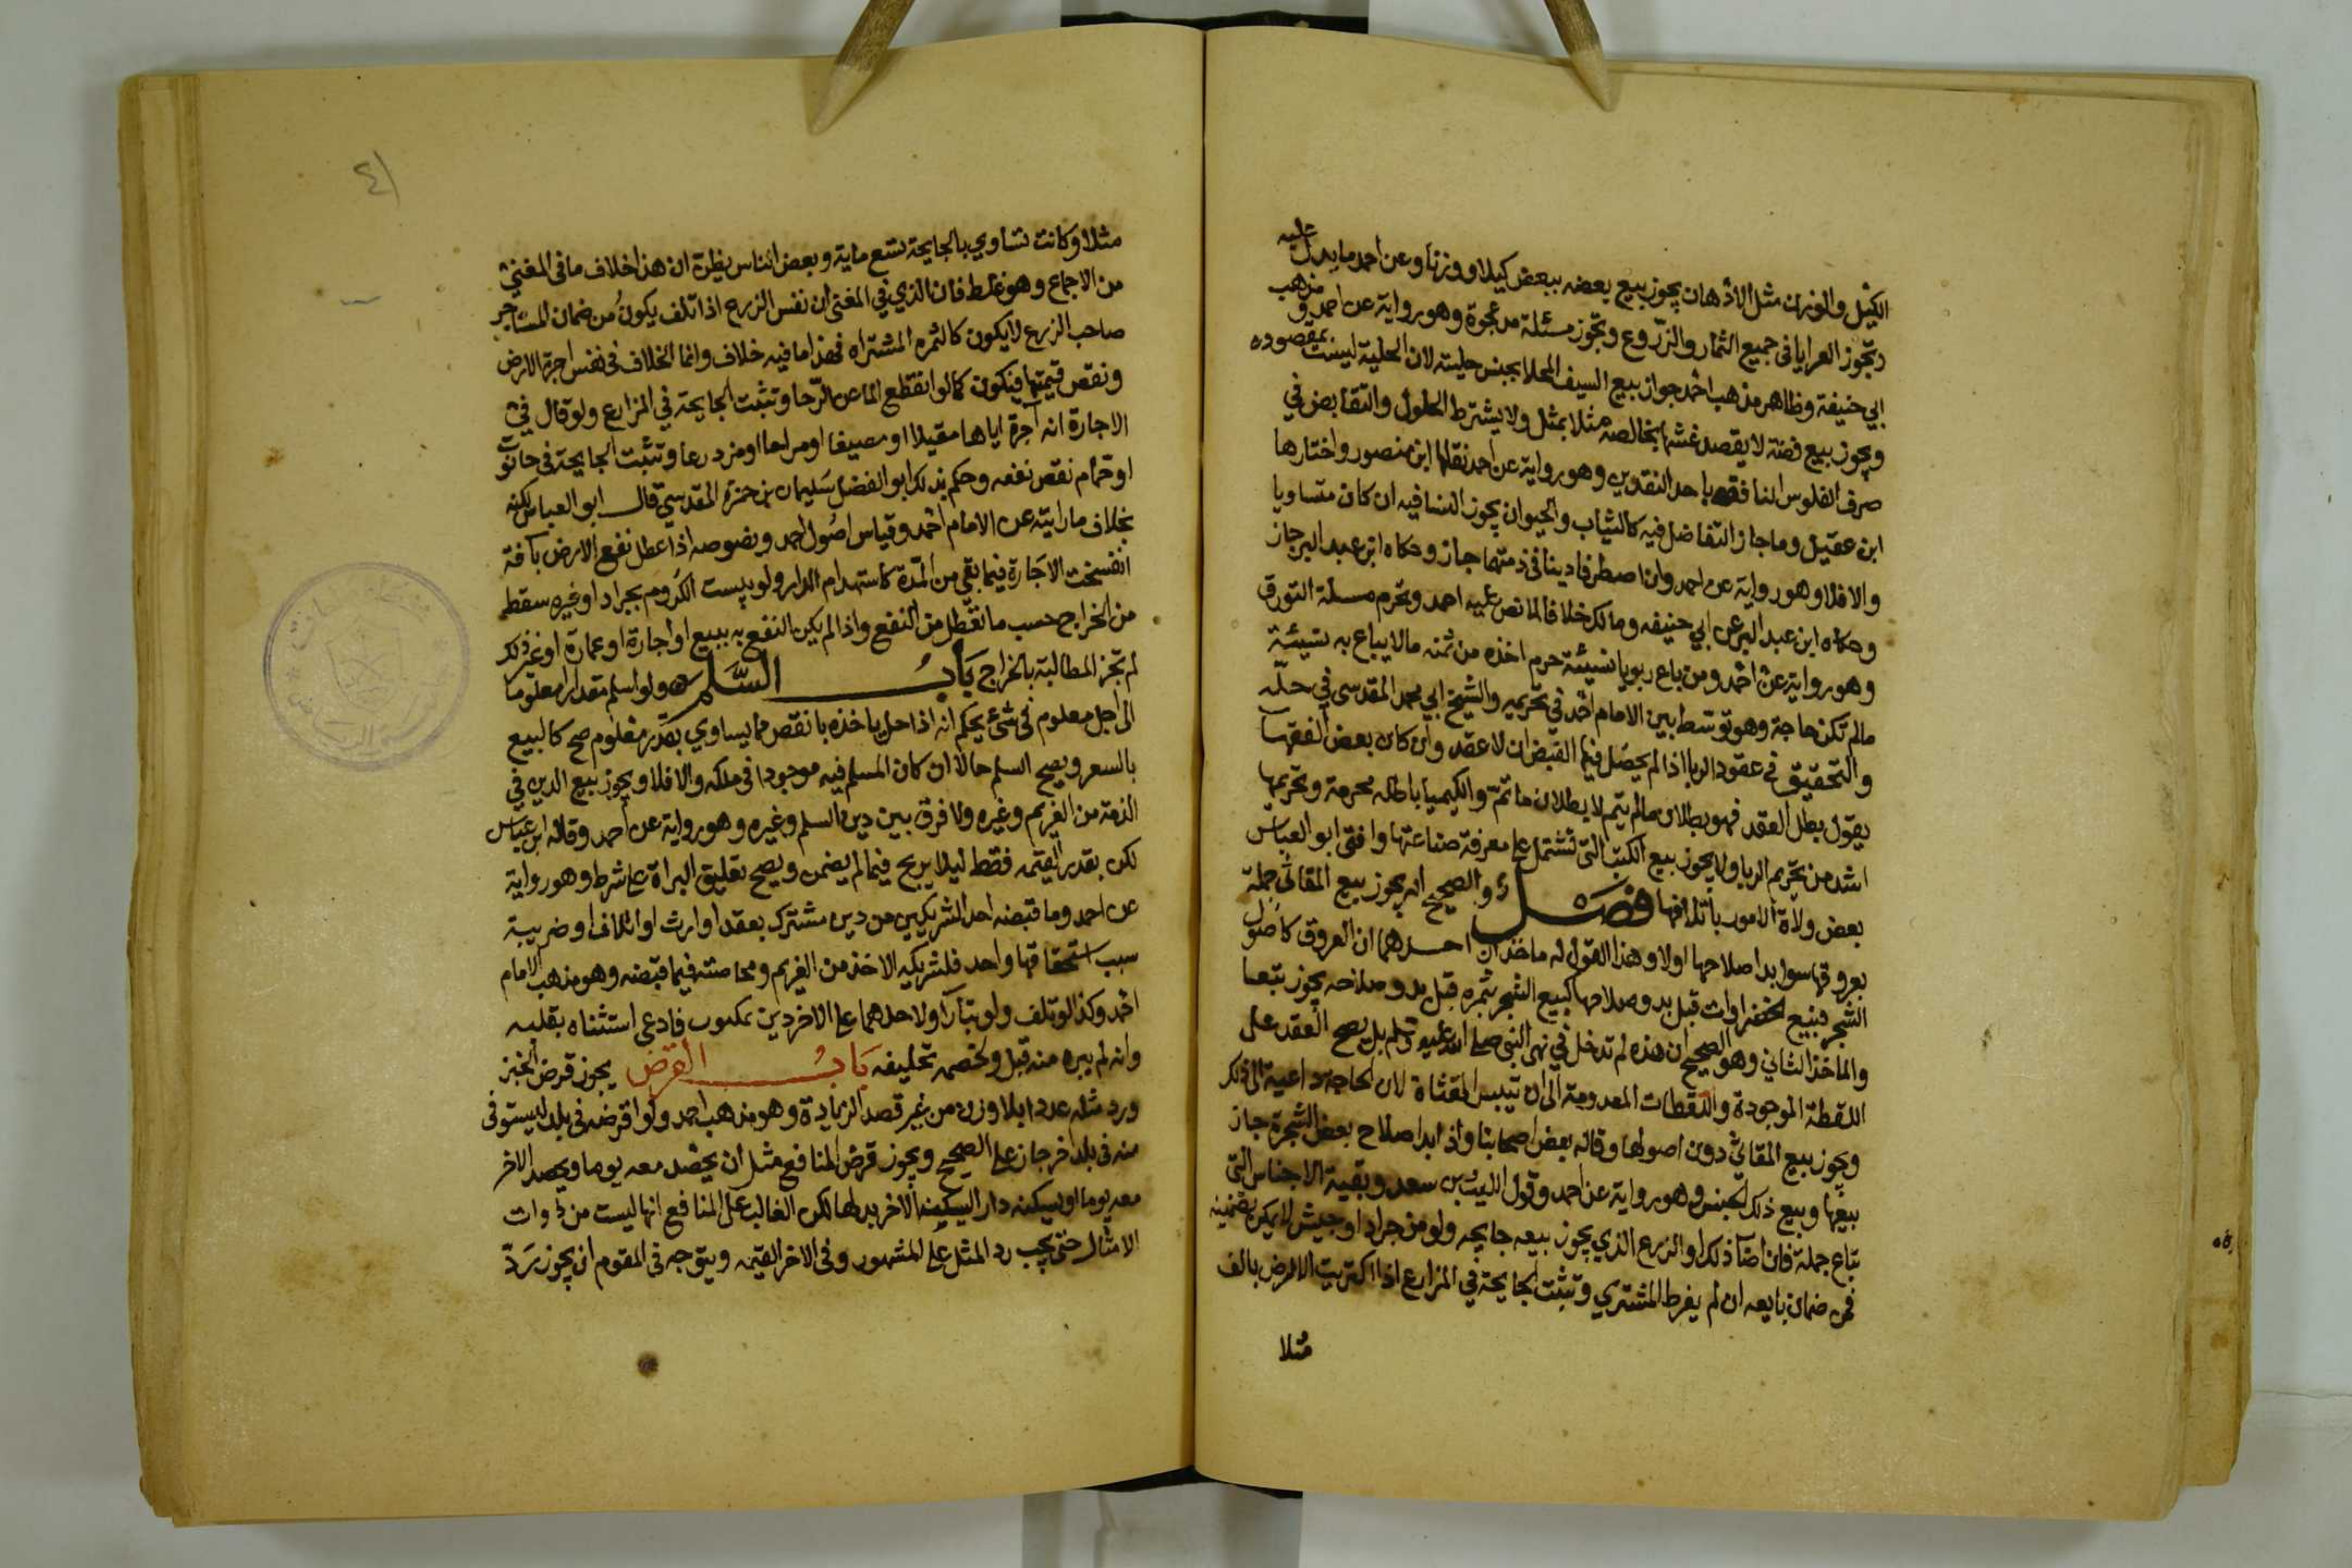 الكيل والوزن مثل الأذهان يجوز بيع بعضه ببعض كيلا ووزنا وعن احمد ما يدل عليه
وتجوز العرايا في جميع الثمار والزروع وتجوز مسئلة مد عجوة وهو رواية عن احمد ومذهب
ابي حنيفة وظاهر مذهب احمد جواز بيع السيف المحلا بجنس حليته لان الحلية ليست بمقصوده
ويجوز بيع فضة لا يقصد غشها بخالصه مثلا بمثل ولا يشترط الحلول والتقابض في
صرف الفلوس النافقه باحد النقدين وهو رواية عن احمد نقلها ابن منصور واختارها
ابن عقيل وما جاز التفاضل فيه كالثياب والحيوان يجوز النسا فيه ان كان متساويا
والا فلا وهو رواية عن احمد وان اصطرفا دينا في ذمتهما جاز وحكاه ابن عبد البر جاز
وحكاه ابن عبد البر عن ابي حنيفه ومالك خلافا لما نص عليه احمد وتحرم مسلة التورق
وهو رواية عن احمد ومن باع ربويا نسيئة حرم اخذه من ثمنه مالا يباع به نسيئة
مالم تكن حاجة وهو توسط بين الامام احمد في تحريمه والشيخ ابي محمد المقدسي في حله
والتحقيق في عقود الربا اذا لم يحصل فيها القبض ان لا عقد وان كان بعض الفقها
يقول بطل العقد فهو بطلان مالم يتم لا بطلان ما تم والكيميا باطله محرمة وتحريمها
اشد من تحريم الربا ولا يجوز بيع الكتب التي تشتمل على معرفة صناعتها وافتى ابو العباس
بعض ولاة الامور باتلافها فصل والصحيح انه يجوز بيع المقاثي جملة
بعروقها سوا بدا صلاحها اولا وهذا القول له ماخذان احدهما ان العروق كاصول
الشجر فبيع الخضراوات قبل بدو صلاحها كبيع الشجر بثمره قبل بدو صلاحه يجوز تبعا
والماخذ الثاني وهو الصحيح ان هذه لم تدخل في نهى النبي صلى الله عليه وسلم بل يصح العقد على
اللقطة الموجودة واللقطات المعدومة الى ان تيبس المقثاة لان الحاجة داعية الى ذلك
ويجوز بيع المقاثي دون اصولها وقاله بعض اصحابنا واذا بدا صلاح بعض الشجرة جاز
بيعها وبيع ذلك الجنس وهو رواية عن احمد وقول الليث بن سعد وبقية الاجناس التي
تباع جملة فان اصا ذلك او الزرع الذي يجوز بيعه جايحه ولو من جراد او جيش لا يمكن تضمينه
فمن ضمان بايعه ان لم يفرط المشتري وتثبت الجايحة في المزارع اذا اكتريت الارض بالف
مثلا
٤١
مثلا وكانت تساوي بالجايحة تسع ماية وبعض الناس يظن ان هذا خلاف ما في المغني
من الاجماع وهو غلط فان الذي في المغنى ان نفس الزرع اذا تلف يكون من ضمان المستاجر
صاحب الزرع لا يكون كالثمره المشتراه فهذا ما فيه خلاف وانما الخلاف في نفس اجرة الارض
ونقص قيمتها فيكون كما لو انقطع الما عن الرحا وتثبت الجايحة في المزارع ولو قال في
الاجارة انه آجره اياها مقيلا او مصيفا او مراحا او مزدرعا وتثبت الجايحة في حانوت
او حمام نقص نفعه وحكم بذلك ابو الفضل سليمان بن حمزة المقدسي قال ابو العباس لكنه
بخلاف ما رايته عن الامام احمد وقياس اصول احمد ونصوصه اذا عطل نفع الارض بآفة
انفسخت الاجارة فيما بقي من المدة كاستهدام الدار ولو يبست الكروم بجراد او غيره سقط
من الخراج حسب ما تعطل من النفع واذا لم يكن النفع به ببيع او اجارة او عمارة او غير ذلك
لم تجز المطالبة بالخراج باب السلم ولو اسلم مقدارا معلوما
الى اجل معلوم في شئ يحكم انه اذا حل ياخذه بانقص مما يساوي بقدر معلوم صح كالبيع
بالسعر ويصح السلم حالا ان كان المسلم فيه موجودا في ملكه والا فلا ويجوز بيع الدين في
الذمة من الغريم وغيره ولا فرق بين دين السلم وغيره وهو رواية عن احمد وقاله ابن عباس
لكن بقدر القيمه فقط ليلا يربح فيما لم يضمن ويصح تعليق البراة على شرط وهو رواية
عن احمد وما قبضه احد الشريكين من دين مشترك بعقد او ارث او اتلاف او ضريبة
سبب استحقاقها واحد فلشريكه الاخذ من الغريم ومحاصته فيما قبضه وهو مذهب الامام
احمد وكذا لو تلف ولو تبارآ ولاحدهما على الاخر دين مكتوب فادعى استثناه بقلبه
وانه لم يبره منه قبل ولخصمه تحليفه باب القرض يجوز قرض الخبز
ورد مثله عددا بلا وزن من غير قصد الزيادة وهو مذهب احمد ولو اقرضه في بلد ليستوفى
منه في بلد اخر جاز على الصحيح ويجوز قرض المنافع مثل ان يحصد معه يوما ويحصد الاخر
معه يوما او يسكنه دارا ليسكنه الاخر بدلها لكن الغالب على المنافع انها ليست من ذوات
الامثال حتى يجب رد المثل على المشهور وفي الاخر القيمه ويتوجه في المقوم ان يجوز رد